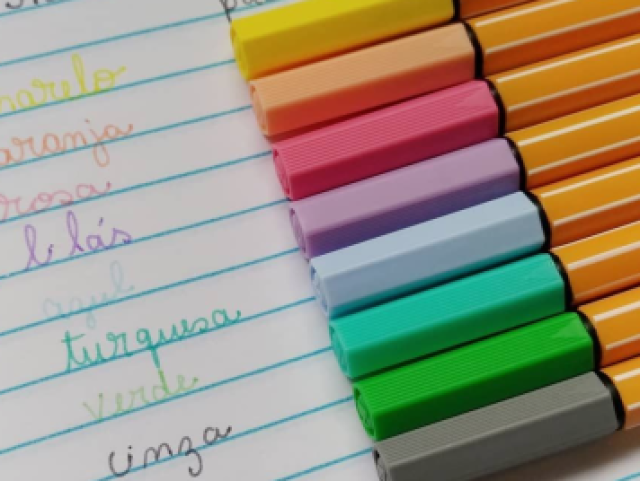 amarelo
laranja
rosa
lilás
azul
turquesa
verde
cinza